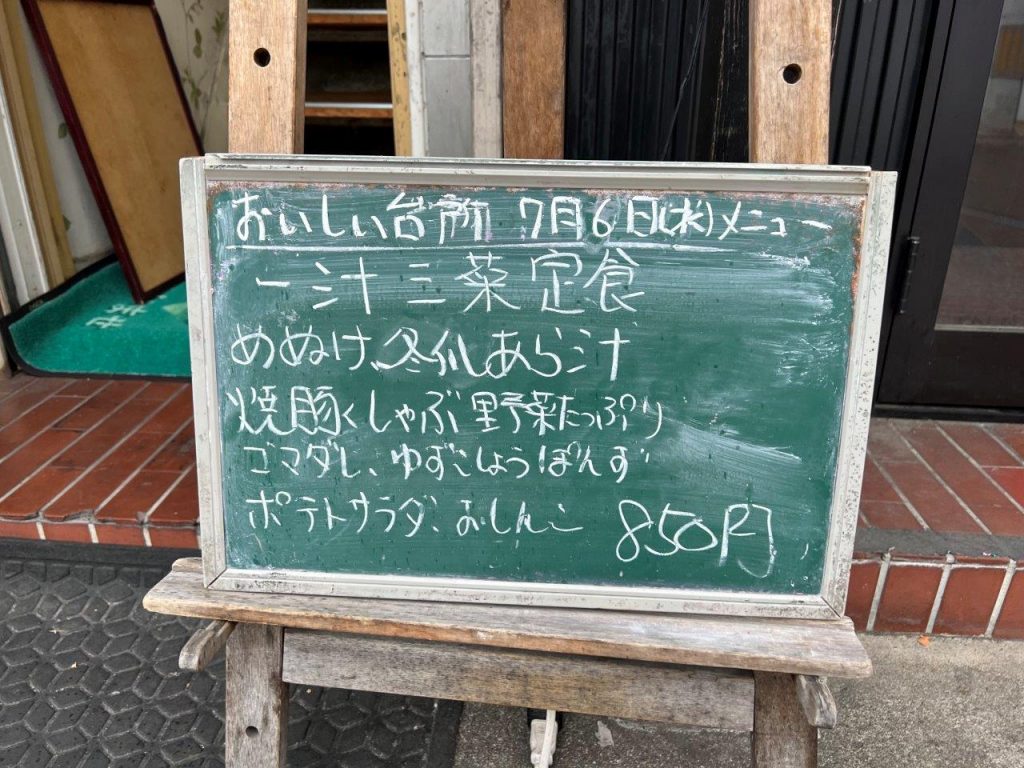 おいしい台所 7月6日(水)メニュー
一汁三菜定食
めぬけ、冬瓜あら汁
焼豚しゃぶ 野菜たっぷり
ゴマダレ、ゆずこしょうぽんず
ポテトサラダ、おしんこ 850円